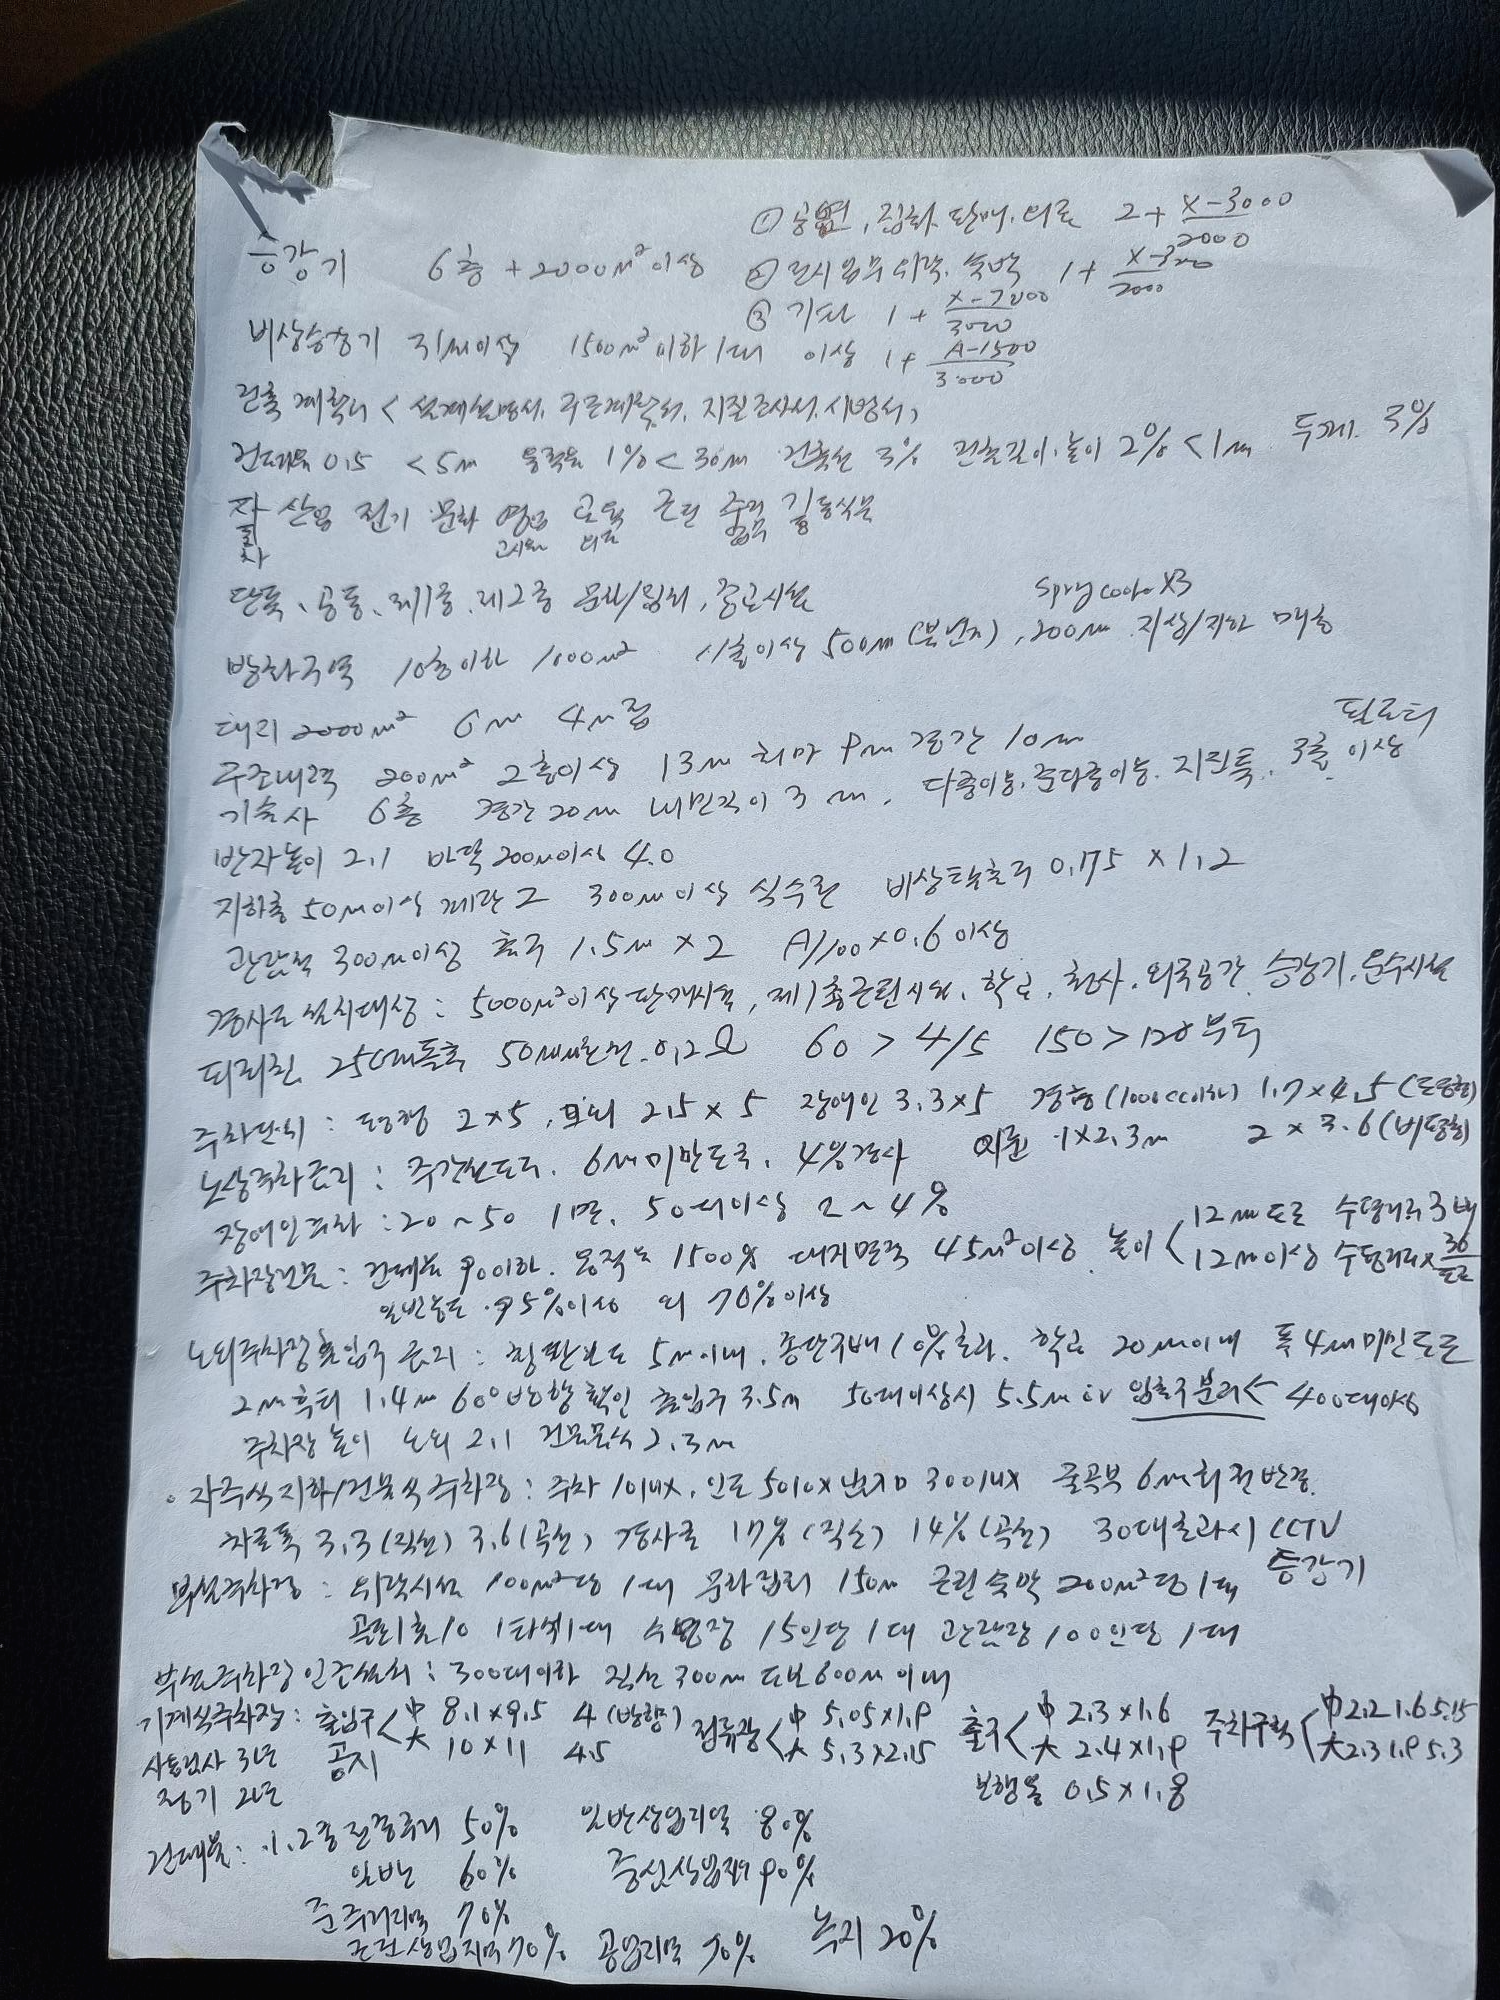 ① 공연, 집회, 판매, 의료 2 + X-3000/2000
승강기 6층 + 2000m² 이상 ② 전시 업무 위락, 숙박 1 + X-3000/2000
③ 기타 1 + X-3000/3000
비상승강기 31m이상 1500m² 이하 1대 이상 1 + A-1500/3000
건축계획서 < 설계설명서, 구조계획서, 지질조사서, 시방서,
건폐율 0.5 < 5m 용적율 1% < 30m 건축선 3% 건물길이, 높이 2% < 1m 두께 3%
자 산업 전기 문화 영업 교육 근린 주거 기 동식물
단독, 공동, 제1종, 제2종 문화/집회, 종교시설
방화구역 10층이하 1000m² 11층이상 500m (불연지), 200m 지상/지하 매층
대지 2000m² 6m 4m접
구조내력 200m² 2층이상 13m 처마 9m 경간 10m
기술사 6층 경간 20m 내민길이 3m, 다중이용, 준다중이용, 지진특, 3층 이상 필로티
반자높이 2.1 바닥 200m이상 4.0
지하층 50m이상 계단 2 300m이상 식수전 비상탈출구 0.75 x 1.2
관람석 300m이상 출구 1.5m x 2 A/100 x 0.6 이상
경사로 설치대상 : 5000m² 이상 판매시설, 제1종근린시설, 학교, 청사, 외국공관, 승강기, 운수시설
피뢰침 25cm돌출 50mm² 0.2Ω 60 > 4/5 150 > 120부터
주차단위 : 평행 2 x 5, 외 2.5 x 5 장애인 3.3 x 5 경형 (1000cc이하) 1.7 x 4.5 (평행)
노상주차금지 : 주간선도로, 6m미만도로, 4%경사 이륜 1 x 2.3m 2 x 3.6 (비평행)
장애인주차 : 20 ~ 50 1면, 50대이상 2 ~ 4%
주차장건물 : 건폐율 90이하, 용적율 1500% 대지면적 45m² 이상 높이 < 12m도로 수평거리 3배
12m이상 수평거리 x 36/도로
일반용도 95%이상 외 70%이상
노외주차장출입구 금지 : 횡단보도 5m이내, 종단구배 10%초과, 학교 20m이내 폭 4m미만도로
2m후퇴 1.4m 60° 방향확인 출입구 3.5m 50대이상시 5.5m or 입출구분리 < 400대이상
주차장높이 노외 2.1 건물식 2.3m
자주식지하/건물식주차장 : 주차 10lux, 인도 50lux 출입구 300lux 굴곡부 6m 회전반경
차로폭 3.3(직선) 3.6(곡선) 경사로 17%(직선) 14%(곡선) 30대초과시 CCTV
부설주차장 : 위락시설 100m²당 1대 문화집회 150m 근린숙박 200m²당 1대 승강기
골프1홀 10 1타석 1대 수영장 15인당 1대 관람장 100인당 1대
부설주차장 인근설치 : 300대이하 직선 300m 도보 600m이내
기계식주차장 : 출입구 < 中 8.1 x 9.5 4 (방향) 정류장 < 中 5.05 x 1.9 출구 < 中 2.3 x 1.6 주차구획 < 中 2.2 1.6 5.15
사용검사 3년 공지 大 10 x 11 4.5 大 5.3 x 2.15 大 2.4 x 1.9 大 2.3 1.9 5.3
정기 2년 보행용 0.5 x 1.8
건폐율 : 1, 2종 전용주거 50% 일반상업지역 80%
일반 60% 중심상업지역 90%
준주거지역 70%
근린상업지역 70% 공업지역 70% 녹지 20%